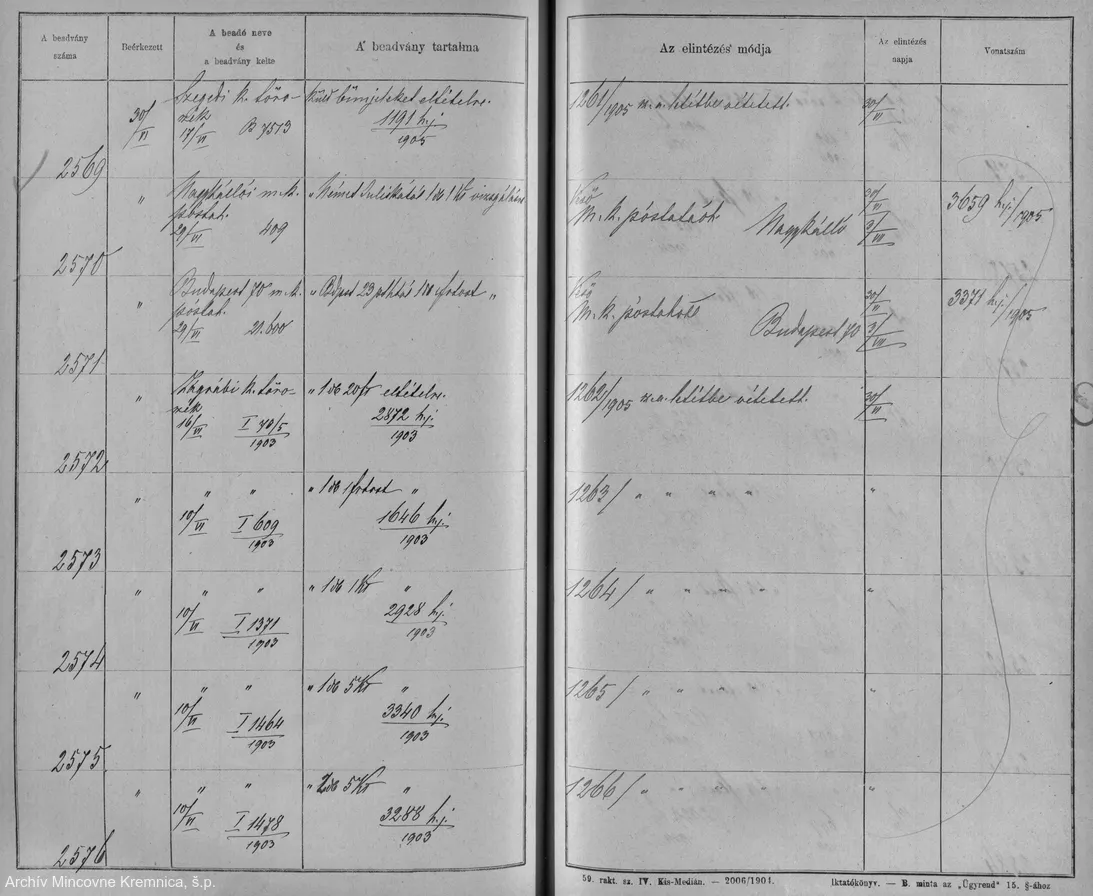 A beadvány száma
Beérkezett
A beadó neve és a beadvány kelte
A beadvány tartalma
Az elintézés módja
Az elintézés napja
Vonatszám
2569
30/VI
Szegedi k. törvszék
17/VI B 7513
bűnjeleket eltételre.
1191 hj.
1905
1261/1905 sz. a. letétbe vétetett.
30/VI
2570
"
Nagykállói m. k.
postat.
29/VI 409
" 1 db 1 Kr vizsgálatra
M. k. póstatáót
Nagykálló
30/VI
3/VII
3659 hj/1905
2571
"
Budapest 70 m. k.
postat.
29/VI 21.600
" Bpest 23 1 db 1 frtost "
M. k. póstahót
Budapest 70
30/VI
3/VII
3371 hj/1905
2572
"
Zágrábi k. törvszék
16/VI I 70/5
1903
" 1 db 20 fr eltételre.
2872 hj.
1903
1262/1905 sz. a. letétbe vétetett.
30/VI
2573
" " "
10/VI I 609
1903
" 1 db 1 frtost "
1646 hj.
1903
1263/ " " " "
"
2574
" " "
10/VI I 1371
1903
" 1 db 1 Kr "
2928 hj.
1903
1264/ " " " "
"
2575
" " "
10/VI I 1464
1903
" 1 db 5 Kr "
3340 hj.
1903
1265/ " "
"
2576
" " "
10/VI I 1478
1903
" 2 db 5 Kr "
3288 hj.
1903
1266/ " "
"
59. rakt. sz. IV. Kis-Medián. — 2006/1904.
Iktatókönyv. — B. minta az „Ügyrend" 15. §-ához
Archív Mincovne Kremnica, š.p.